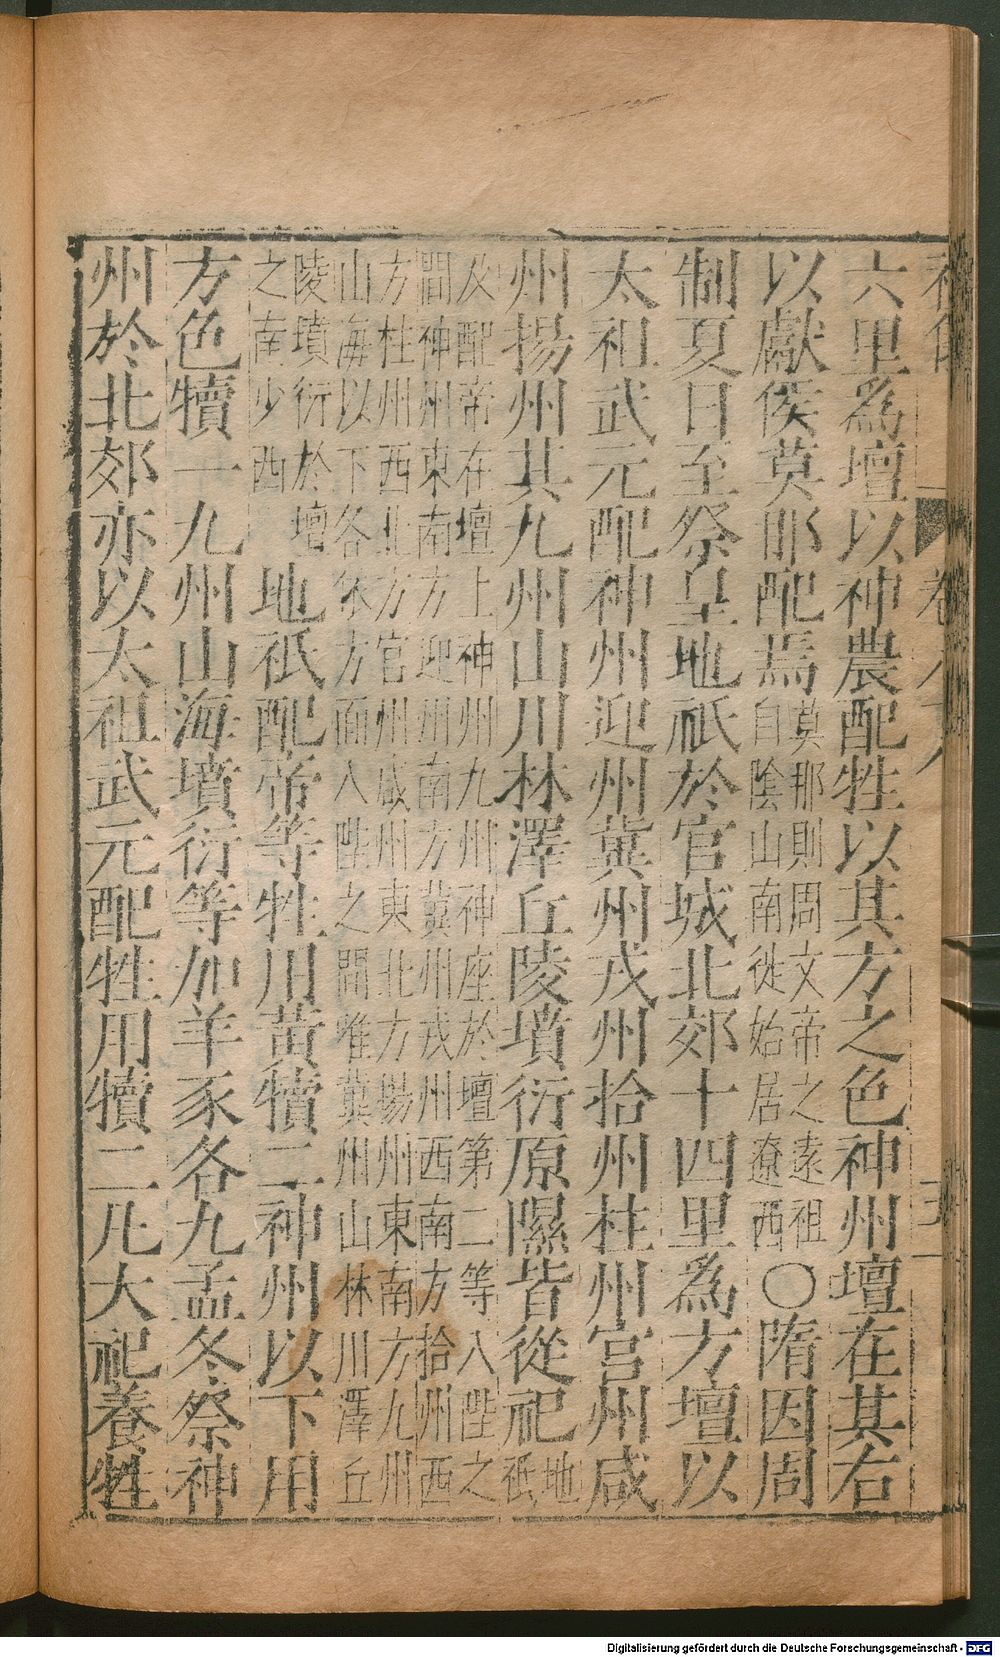 六里爲壇以神農配牲以其方之色神州壇在其右
以獻侯莫耶配焉莫那則周文帝之遠祖自陰山南徙始居遼西〇隋因周
制夏日至祭皇地祇於官城北郊十四里爲方壇以
太祖武元配神州迎州冀州戎州拾州柱州宮州咸
州揚州其九州山川林澤丘陵墳衍原隰皆從祀地祇
及配帝在壇上神州九州神座於壇第二等八陛之
間神州東南方迎州南方冀州戎州西南方拾州西
方柱州西北方官州咸州東北方揚州東南方九州
山海以下各依方面八陛之間唯冀州山林川澤丘
陵墳衍於壇之南少西地祇配帝等牲用黃犢二神州以下用
方色犢一九州山海墳衍等加羊豕各九孟冬祭神
州於北郊亦以太祖武元配牲用犢二凡大祀養牲
Digitalisierung gefördert durch die Deutsche Forschungsgemeinschaft - DFG